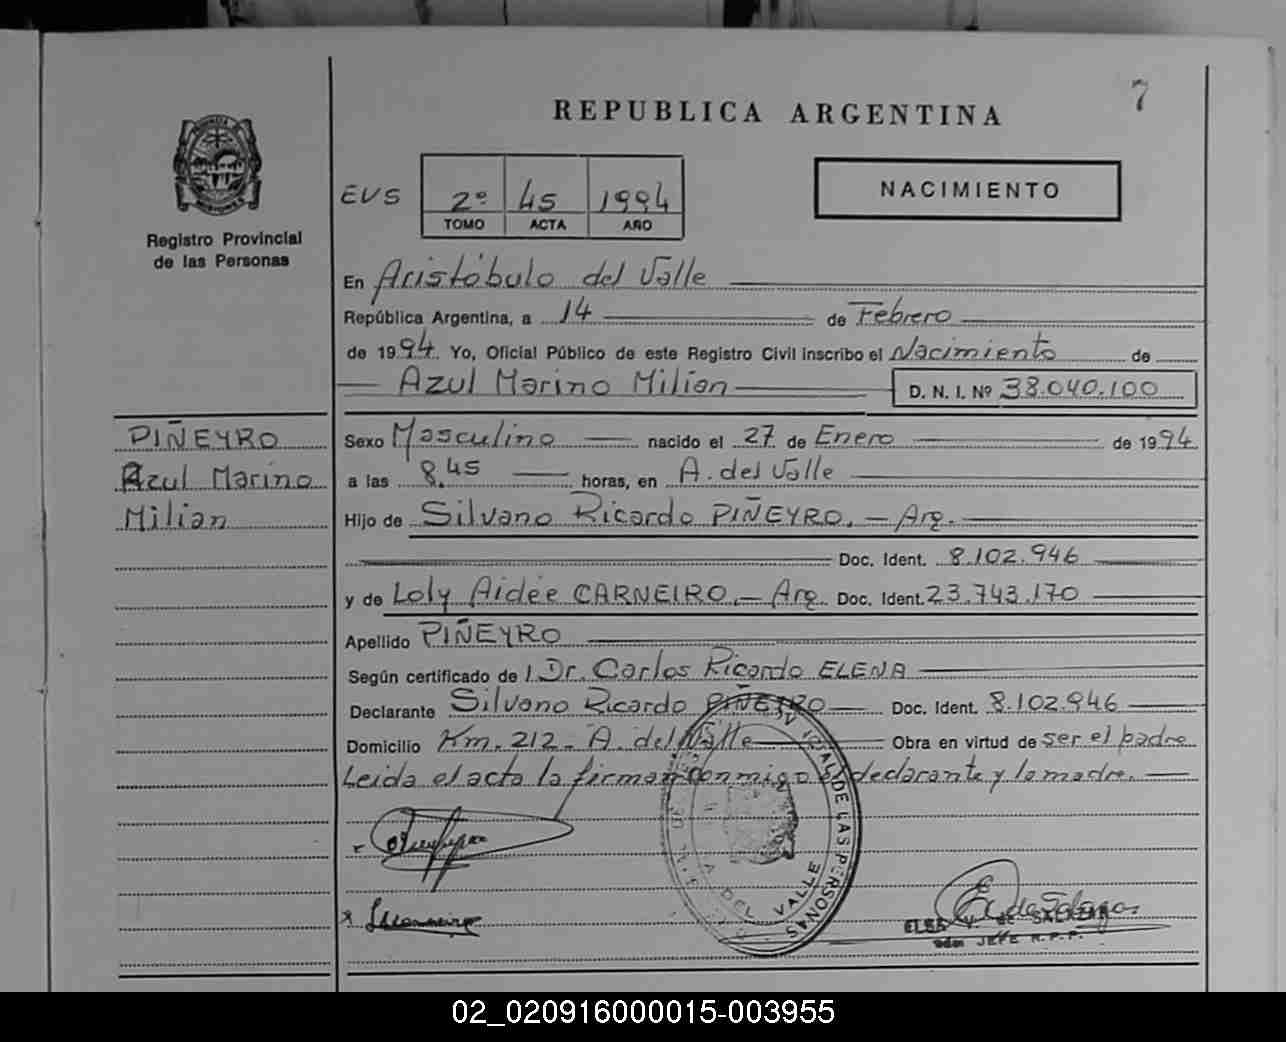 7
REPUBLICA ARGENTINA
PROVINCIA DE MISIONES
Registro Provincial
de las Personas
NACIMIENTO
EVS 2º 45 1994
TOMO ACTA AÑO
En Aristóbulo del Valle
República Argentina, a 14 de Febrero
de 1994. Yo, Oficial Público de este Registro Civil inscribo el Nacimiento de
Azul Marino Milian D. N. I. Nº 38.040.100
PIÑEYRO
Azul Marino
Milian
Sexo Masculino nacido el 27 de Enero de 1994
a las 8.45 horas, en A. del Valle
Hijo de Silvano Ricardo PIÑEYRO. — Arg.
Doc. Ident. 8.102.946
y de Loly Aidée CARNEIRO. — Arg. Doc. Ident. 23.743.170
Apellido PIÑEYRO
Según certificado de l Dr. Carlos Ricardo ELENA
Declarante Silvano Ricardo PIÑEYRO Doc. Ident. 8.102.946
Domicilio Km. 212 - A. del Valle Obra en virtud de ser el padre
Leida el acta la firman conmigo el declarante y la madre.
DE LAS PERSONAS
A DEL VALLE
ELSA V. de SALAZAR
JEFE R.P.P.
02_020916000015-003955